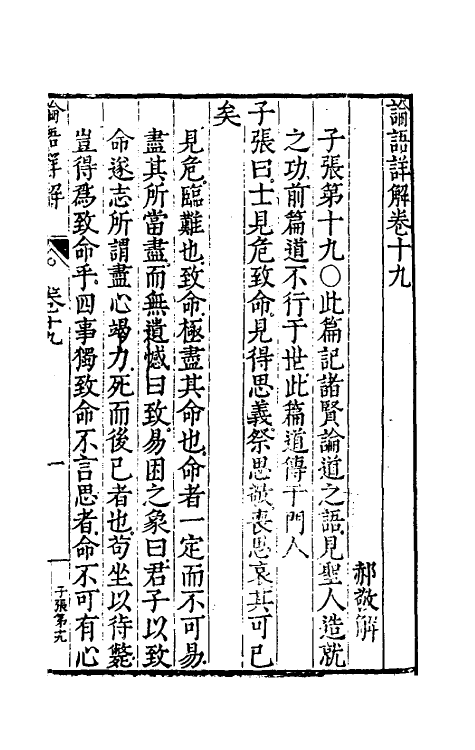 論語詳解卷十九
郝敬解
子張第十九○此篇記諸賢論道之語見聖人造就
之功前篇道不行于世此篇道傳于門人
子張曰士見危致命見得思義祭思敬喪思哀其可已
矣
見危臨難也致命極盡其命也命者一定而不可易
盡其所當盡而無遺憾曰致易困之象曰君子以致
命遂志所謂盡心竭力死而後已者也苟坐以待斃
豈得爲致命乎四事獨致命不言思者命不可有心
論語詳解
卷十九
一
子張第十九